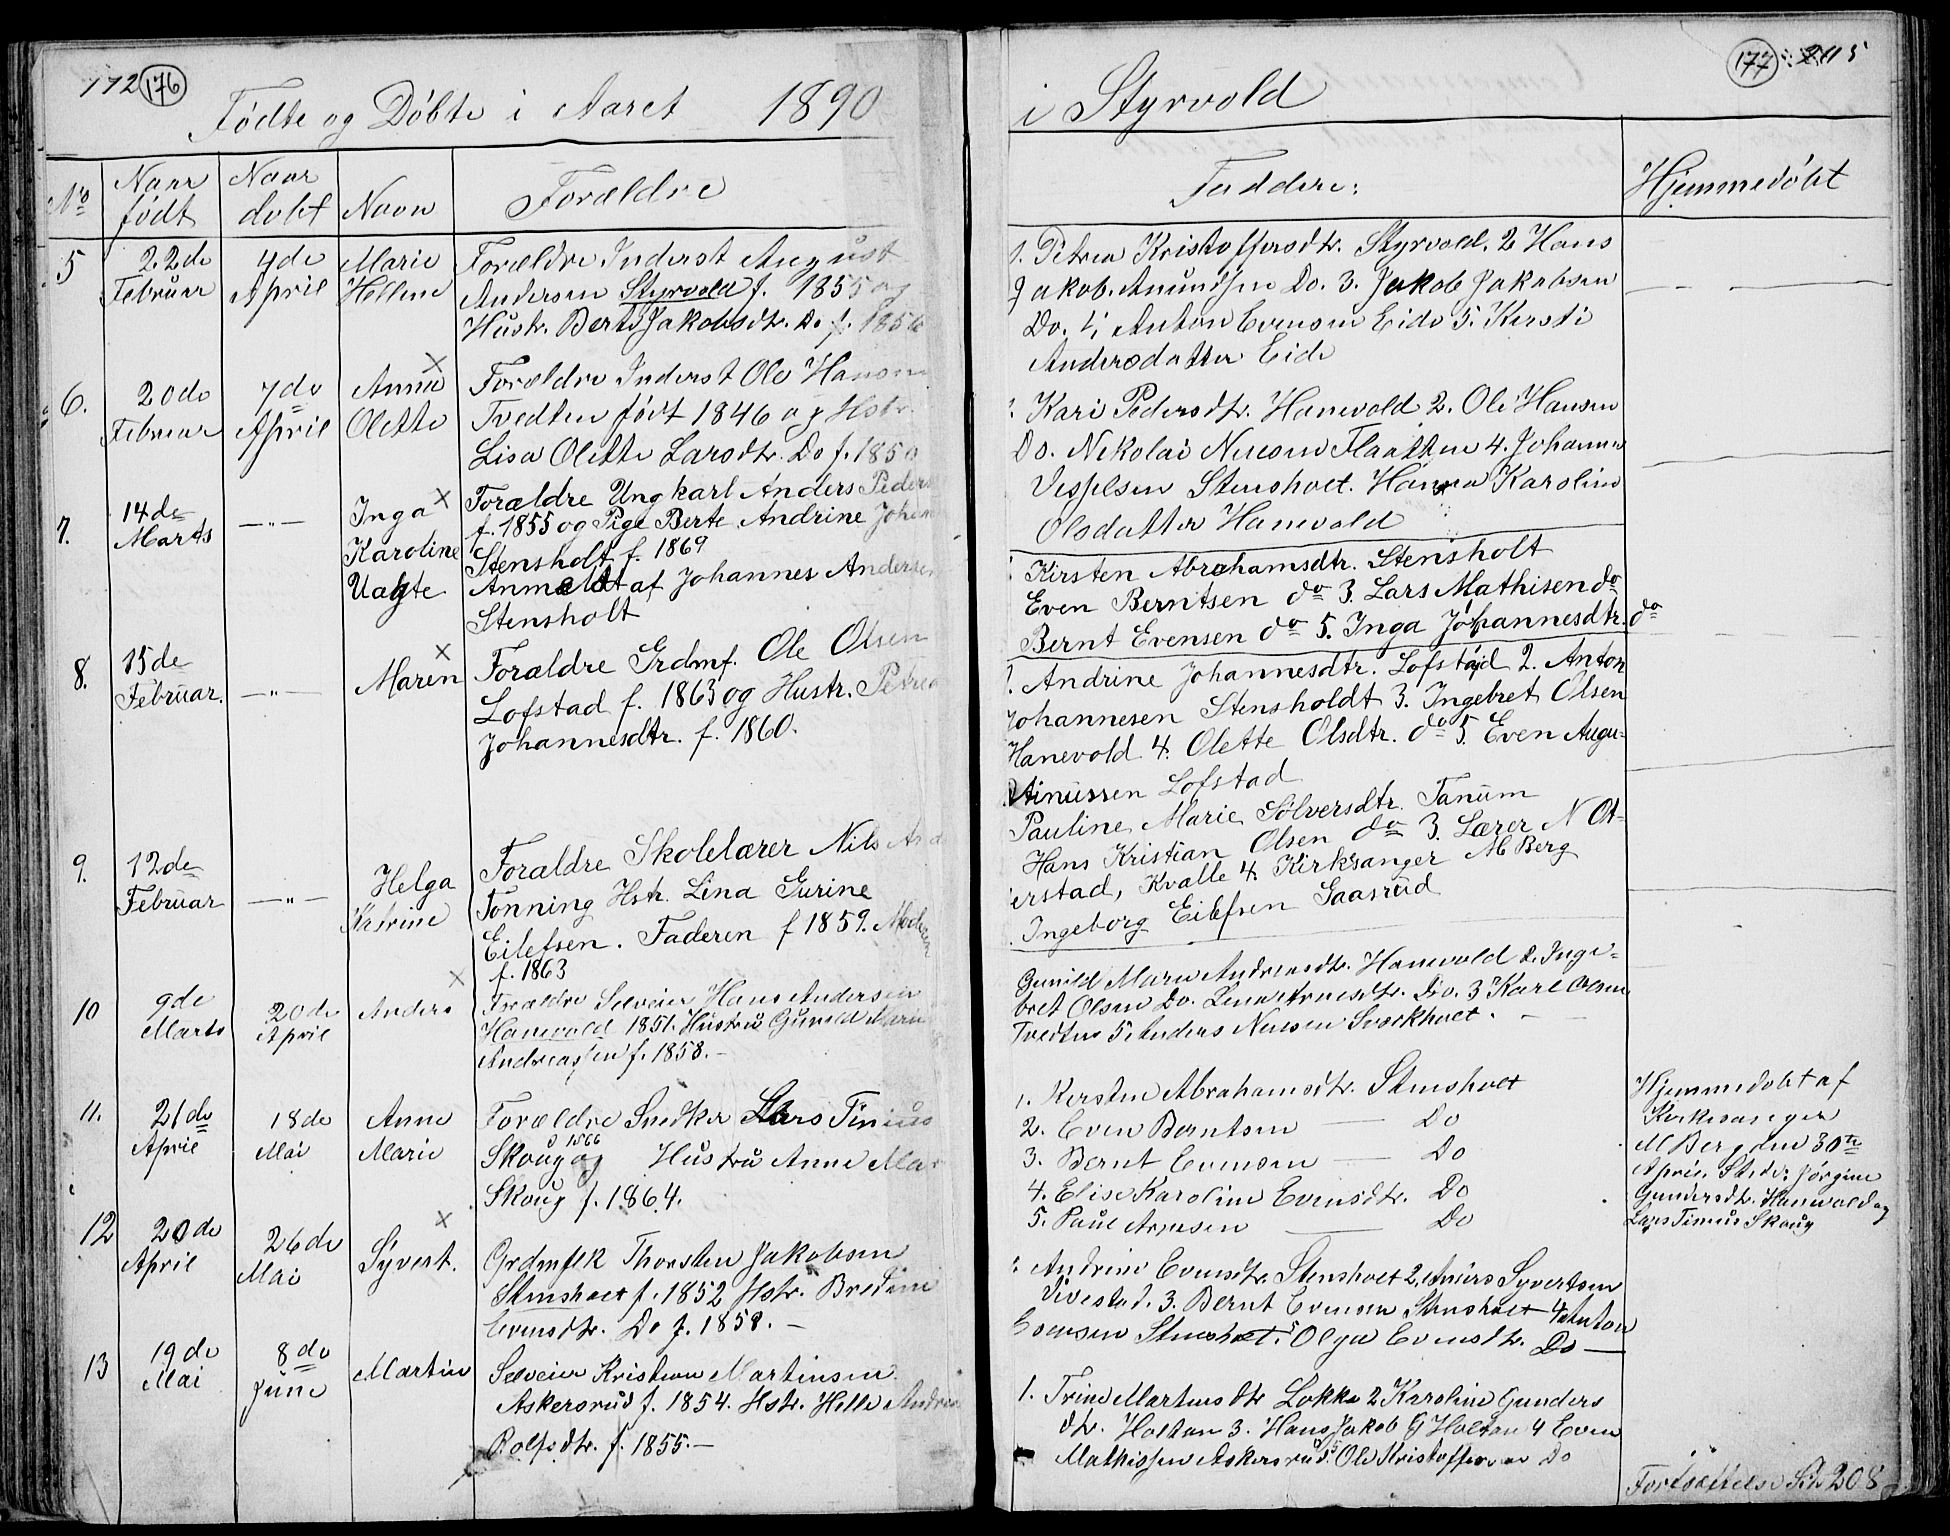 172 176
Fødte og Døbte i Aaret 1890
No
Naar født
Naar døbt
Navn
Forældre
5
22de Februar
4de April
Marie Helline
Forældre Inderst August
Andersen Styrvold f. 1855 og
Hustr. Berte Jakobsdtr. Do f. 1856
6.
20de Februar
7de April
Anna Olette
Forældre Inderst Ole Hansen
Tvedten født 1846 og Hstr.
Lisa Olette Larsdtr. Do f. 1850
7.
14de Marts
—"—
Inga Karoline Uagte
Forældre Ungkarl Anders Peders
f. 1855 og Pige Berte Andrine Johan
Stensholt f. 1869
Anmeldt af Johannes Andersen
Stensholt
8.
15de Februar.
—"—
Maren
Foraldre Grdmf. Ole Olsen
Lofstad f. 1863 og Hustr. Petrea
Johannesdtr. f. 1860.
9.
12de Februar
—"—
Helga Katrine
Foraldre Skolelærer Nils
Tonning Hstr. Lina Gurine
Eilefsen. Faderen f 1859. Moderen
f. 1863
10
9de Marts
20de April
Anders
Forældre Selveier Hans Andersen
Hanevold 1851. Hustru Gunild Marie
Andreassen f. 1858.-
11.
21de April
18de Mai
Anne Marie
Forældre Snedker Lars Tinius
Skoug og Hustru Anne Mar
Skoug f. 1864.
12
20de April
26de Mai
Syvert.
Grdmflk Thorsten Jakobsen
Stensholt f. 1852 Hstr. Bredine
Evensdtr. Do f. 1858.-
13
19de Mai
8de June
Martin
Selveier Kristian Martinsen
Askersrud f. 1854. Hstr. Helle Andrea
Rolfsdtr. f. 1855.-
177
i Styrvold
Faddere:
Hjemmedøbt
1. Petrea Kristoffersdtr. Styrvold. 2 Hans
Jakob. Amundsen Do. 3. Jakob Jakobsen
Do. 4 Anton Evensen Eide 5. Kersti
Andersdatter Eide
Kari Pedersdtr. Hanevold 2. Ole Hansen
Do. Nekolai Nielsen Flaatten 4. Johannes
Stensholt. Hanna Karoline
Olsdatter Hanevold
Kirsten Abrahamsdtr. Stensholt
Even Berntsen do 3. Lars Mathisen do
Bernt Evensen do 5. Inga Johannesdtr. do
1. Andrine Johannesdtr. Lofstad 2. Anton
Johannesen Stensholdt 3. Ingebret Olsen
Hanevold 4. Olette Olsdtr. do 5. Even Augu-
stinussen Lofstad
Pauline Marie Sølversdtr. Tanum
Hans Kristian Olsen do 3. Lærer N Ot-
terstad, Kvalle 4. Kirkesanger M Berg
Ingeborg Eilefsen Gaasrud
Gunild Marie Andreasdtr. Hanevold 2. Inge-
bret Olsen Do. Lina Arnesdtr. Do. 3 Karl Olsen
Tvedten 5 Anders Nielsen Svartholt.
1. Kersten Abrahamsdtr. Stensholt
2. Even Berntsen — Do
3. Bernt Evensen — Do
4. Elise Karoline Evensdtr. Do
5. Paul Arnesen — Do
Hjemmedøbt af
Kirkesanger
M Berg den 30te
April. Jørgine
Gundersdtr. Hanevold og
Lars Tinius Skoug
Andrine Evensdtr. Stensholt 2. Anders Syvertsen
Vivestad. 3. Bernt Evensen Stensholt 4 Anton
Evensen Stensholt. 5 Olga Evensdtr. Do —
1. Trine Martinsdtr Løkke 2 Karoline Gunders
dtr. Holtan 3. Hans Jakob G Holtan 4 Even
Mathissen Askersrud. 5 Ole Kristoffersen Do
Fortsættelse Side 208